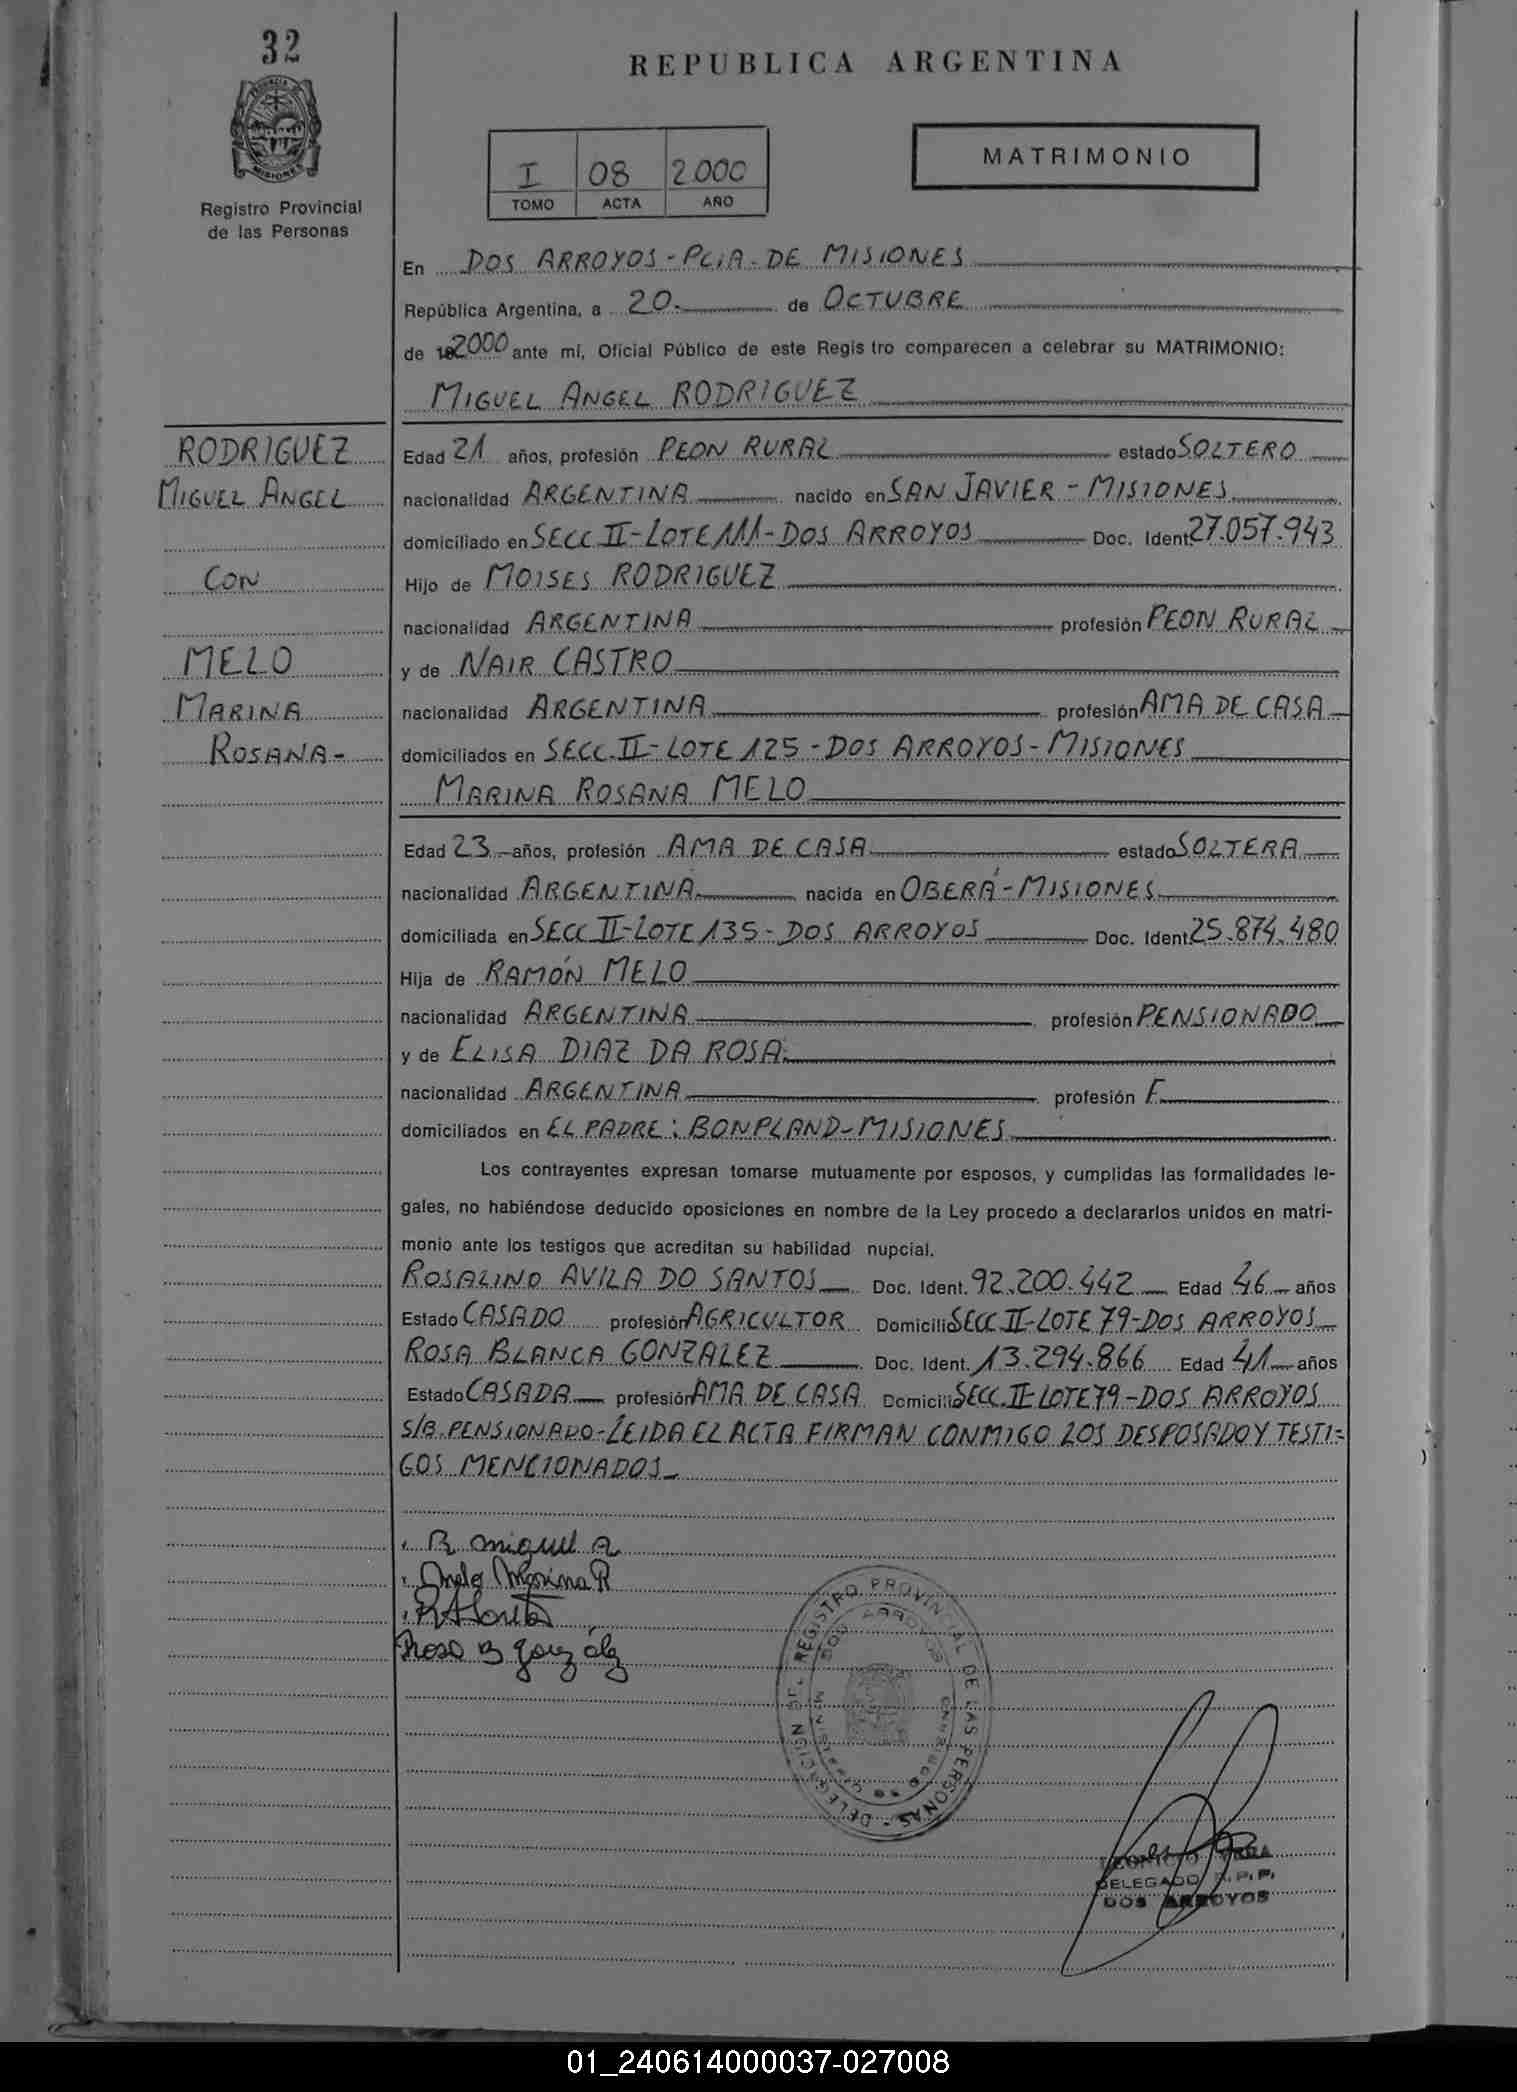 32
PROVINCIA DE
MISIONES
Registro Provincial
de las Personas
REPUBLICA ARGENTINA
I 08 2000
TOMO ACTA AÑO
MATRIMONIO
En DOS ARROYOS - PCIA. DE MISIONES
República Argentina, a 20. de OCTUBRE
de 192000 ante mí, Oficial Público de este Regis tro comparecen a celebrar su MATRIMONIO:
MIGUEL ANGEL RODRIGUEZ
RODRIGUEZ
MIGUEL ANGEL
CON
MELO
MARINA
ROSANA-
Edad 21 años, profesión PEON RURAL estado SOLTERO
nacionalidad ARGENTINA nacido en SAN JAVIER - MISIONES
domiciliado en SECC II-LOTE 111-DOS ARROYOS Doc. Ident. 27.057.943
Hijo de MOISES RODRIGUEZ
nacionalidad ARGENTINA profesión PEON RURAL
y de NAIR CASTRO
nacionalidad ARGENTINA profesión AMA DE CASA
domiciliados en SECC. II-LOTE 125-DOS ARROYOS-MISIONES
MARINA ROSANA MELO
Edad 23 años, profesión AMA DE CASA estado SOLTERA
nacionalidad ARGENTINA nacida en OBERÁ-MISIONES
domiciliada en SECC II-LOTE 135-DOS ARROYOS Doc. Ident. 25.874.480
Hija de RAMÓN MELO
nacionalidad ARGENTINA profesión PENSIONADO
y de ELISA DIAZ DA ROSA
nacionalidad ARGENTINA profesión F.
domiciliados en EL PADRE: BONPLAND-MISIONES
Los contrayentes expresan tomarse mutuamente por esposos, y cumplidas las formalidades le-
gales, no habiéndose deducido oposiciones en nombre de la Ley procedo a declararlos unidos en matri-
monio ante los testigos que acreditan su habilidad nupcial.
ROSALINO AVILA DO SANTOS Doc. Ident. 92.200.442 Edad 46 años
Estado CASADO profesión AGRICULTOR Domicilio SECC II-LOTE 79-DOS ARROYOS
ROSA BLANCA GONZALEZ Doc. Ident. 13.294.866 Edad 41 años
Estado CASADA profesión AMA DE CASA Domicilio SECC. II-LOTE 79-DOS ARROYOS
S/B. PENSIONADO-LEIDA EL ACTA FIRMAN CONMIGO LOS DESPOSADO Y TESTI=
GOS MENCIONADOS
R miguel A
Melo Marina R
Rosa B gonzález
DELEGACION REGISTRO PROVINCIAL DE LAS PERSONAS
DOS ARROYOS
DELEGADO R.P.P.
DOS ARROYOS
01_240614000037-027008